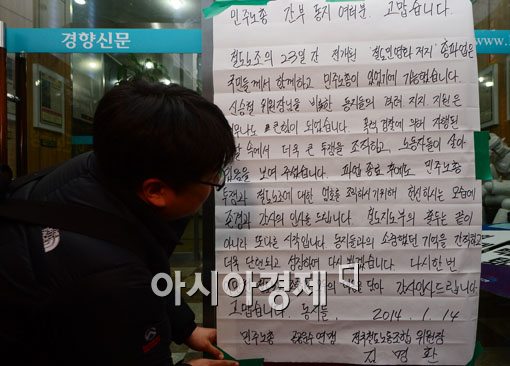 경향신문
www.k
민주노총 간부 동지 여러분. 고맙습니다.
철도노조의 23일간 전개된 철도민영화 저지 총파업은
국민들께서 함께하고 민주노총이 있었기에 가능했습니다.
신승철 위원장님을 비롯한 동지들의 격려 지지 지원은
큰 힘이 되었습니다. 폭력 경찰에 의해 자행된
속에서 더욱 큰 투쟁을 조직하고, 노동자들이 살아
있음을 보여 주셨습니다. 파업 종료 후에도 민주노총
투쟁과 철도노조에 대한 엄호를 조직하시기 위해 헌신하시는 모습에
존경과 감사의 인사를 드립니다. 철도지도부의 출두는 끝이
아니라 또다른 시작입니다. 동지들과의 소중했던 기억을 간직하고
더욱 단련되고 성장하여 다시 뵙겠습니다. 다시 한번
담아 감사인사드립니다.
고맙습니다. 동지들. 2014. 1. 14
민주노총 공공운수연맹 전국철도노동조합 위원장
김명환
아시아경제